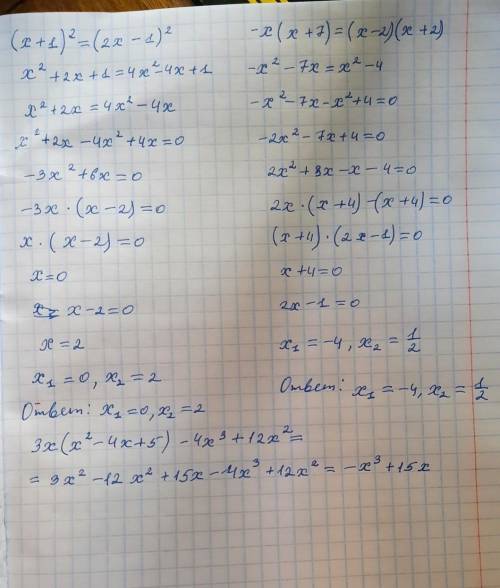 (x+1)² = (2x-1)²
x² + 2x + 1 = 4x² - 4x + 1
x² + 2x = 4x² - 4x
x² + 2x - 4x² + 4x = 0
-3x² + 6x = 0
-3x · (x-2) = 0
x · (x-2) = 0
x = 0
x - 2 = 0
x = 2
x₁ = 0, x₂ = 2
Ответ: x₁ = 0, x₂ = 2
-x(x+7) = (x-2)(x+2)
-x² - 7x = x² - 4
-x² - 7x - x² + 4 = 0
-2x² - 7x + 4 = 0
2x² + 8x - x - 4 = 0
2x · (x+4) - (x+4) = 0
(x+4) · (2x-1) = 0
x + 4 = 0
2x - 1 = 0
x₁ = -4, x₂ = 1/2
Ответ: x₁ = -4, x₂ = 1/2
3x(x² - 4x + 5) - 4x³ + 12x² =
= 3x² - 12x² + 15x - 4x³ + 12x² = -x³ + 15x